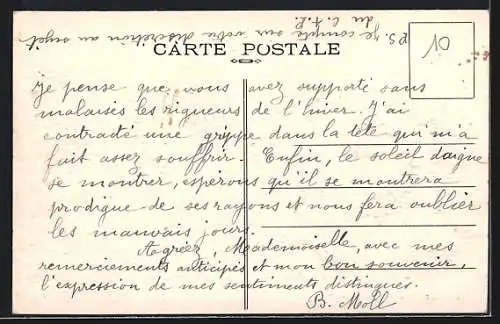 P.S. Je compte sur votre discrétion au sujet
du C. A. P.
CARTE POSTALE
10
Je pense que vous avez supporté sans
malaises les rigueurs de l'hiver. J'ai
contracté une grippe dans la tête qui m'a
fait assez souffrir. Enfin, le soleil daigne
se montrer, espérons qu'il se montrera
prodigue de ses rayons et nous fera oublier
les mauvais jours.
Agréez, Meademoiselle, avec mes
remerciements anticipés et mon bon souvenir,
l'expression de mes sentiments distingués.
B. Moll